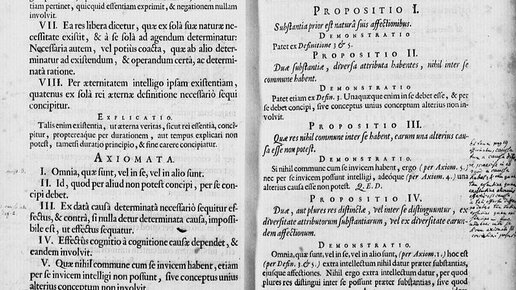 tiam pertinet, quicquid essentiam exprimit, & negationem nullam
involvit.
VII. Ea res libera dicetur, quæ ex solâ suæ naturæ ne-
cessitate existit, & à se solâ ad agendum determinatur:
Necessaria autem, vel potius coacta, quæ ab alio deter-
minatur ad existendum, & operandum certâ, ac determi-
natâ ratione.
VIII. Per æternitatem intelligo ipsam existentiam,
quatenus ex solâ rei æternæ definitione necessariò sequi
concipitur.
EXPLICATIO.
Talis enim existentia, ut æterna veritas, sicut rei essentia, conci-
pitur, proptereaque per durationem, aut tempus explicari non
potest, tametsi duratio principio, & fine carere concipiatur.
AXIOMATA.
I. Omnia, quæ sunt, vel in se, vel in alio sunt.
II. Id, quod per aliud non potest concipi, per se con-
cipi debet.
III. Ex datâ causâ determinatâ necessariò sequitur ef-
fectus, & contrà, si nulla detur determinata causa, impossi-
bile est, ut effectus sequatur.
IV. Effectûs cognitio à cognitione causæ dependet, &
eandem involvit.
V. Quæ nihil commune cum se invicem habent, etiam
per se invicem intelligi non possunt, sive conceptus unius
conceptum alterius non involvit.
PROPOSITIO I.
Substantia prior est naturâ suis affectionibus.
DEMONSTRATIO
Patet ex Definitione 3 & 5.
PROPOSITIO II.
Duæ substantiæ, diversa attributa habentes, nihil inter se
commune habent.
DEMONSTRATIO.
Patet etiam ex Defin. 3. Unaquæque enim in se debet esse, & per
se debet concipi, sive conceptus unius conceptum alterius non invol-
vit.
PROPOSITIO III.
Quæ res nihil commune inter se habent, earum una alterius cau-
sa esse non potest.
DEMONSTRATIO.
Si nihil commune cum se invicem habent, ergo (per Axiom. 5.)
nec per se invicem possunt intelligi, adeóque (per Axiom. 4.) una
alterius causa esse non potest. Q.E.D.
PROPOSITIO IV.
Duæ, aut plures res distinctæ, vel inter se distinguuntur, ex
diversitate attributorum substantiarum, vel ex diversitate earun-
dem affectionum.
DEMONSTRATIO.
Omnia, quæ sunt, vel in se, vel in alio sunt, (per Axiom. 1.) hoc est
(per Defin. 3 & 5.) extra intellectum nihil datur præter substantias,
earumque affectiones. Nihil ergo extra intellectum datur, per quod